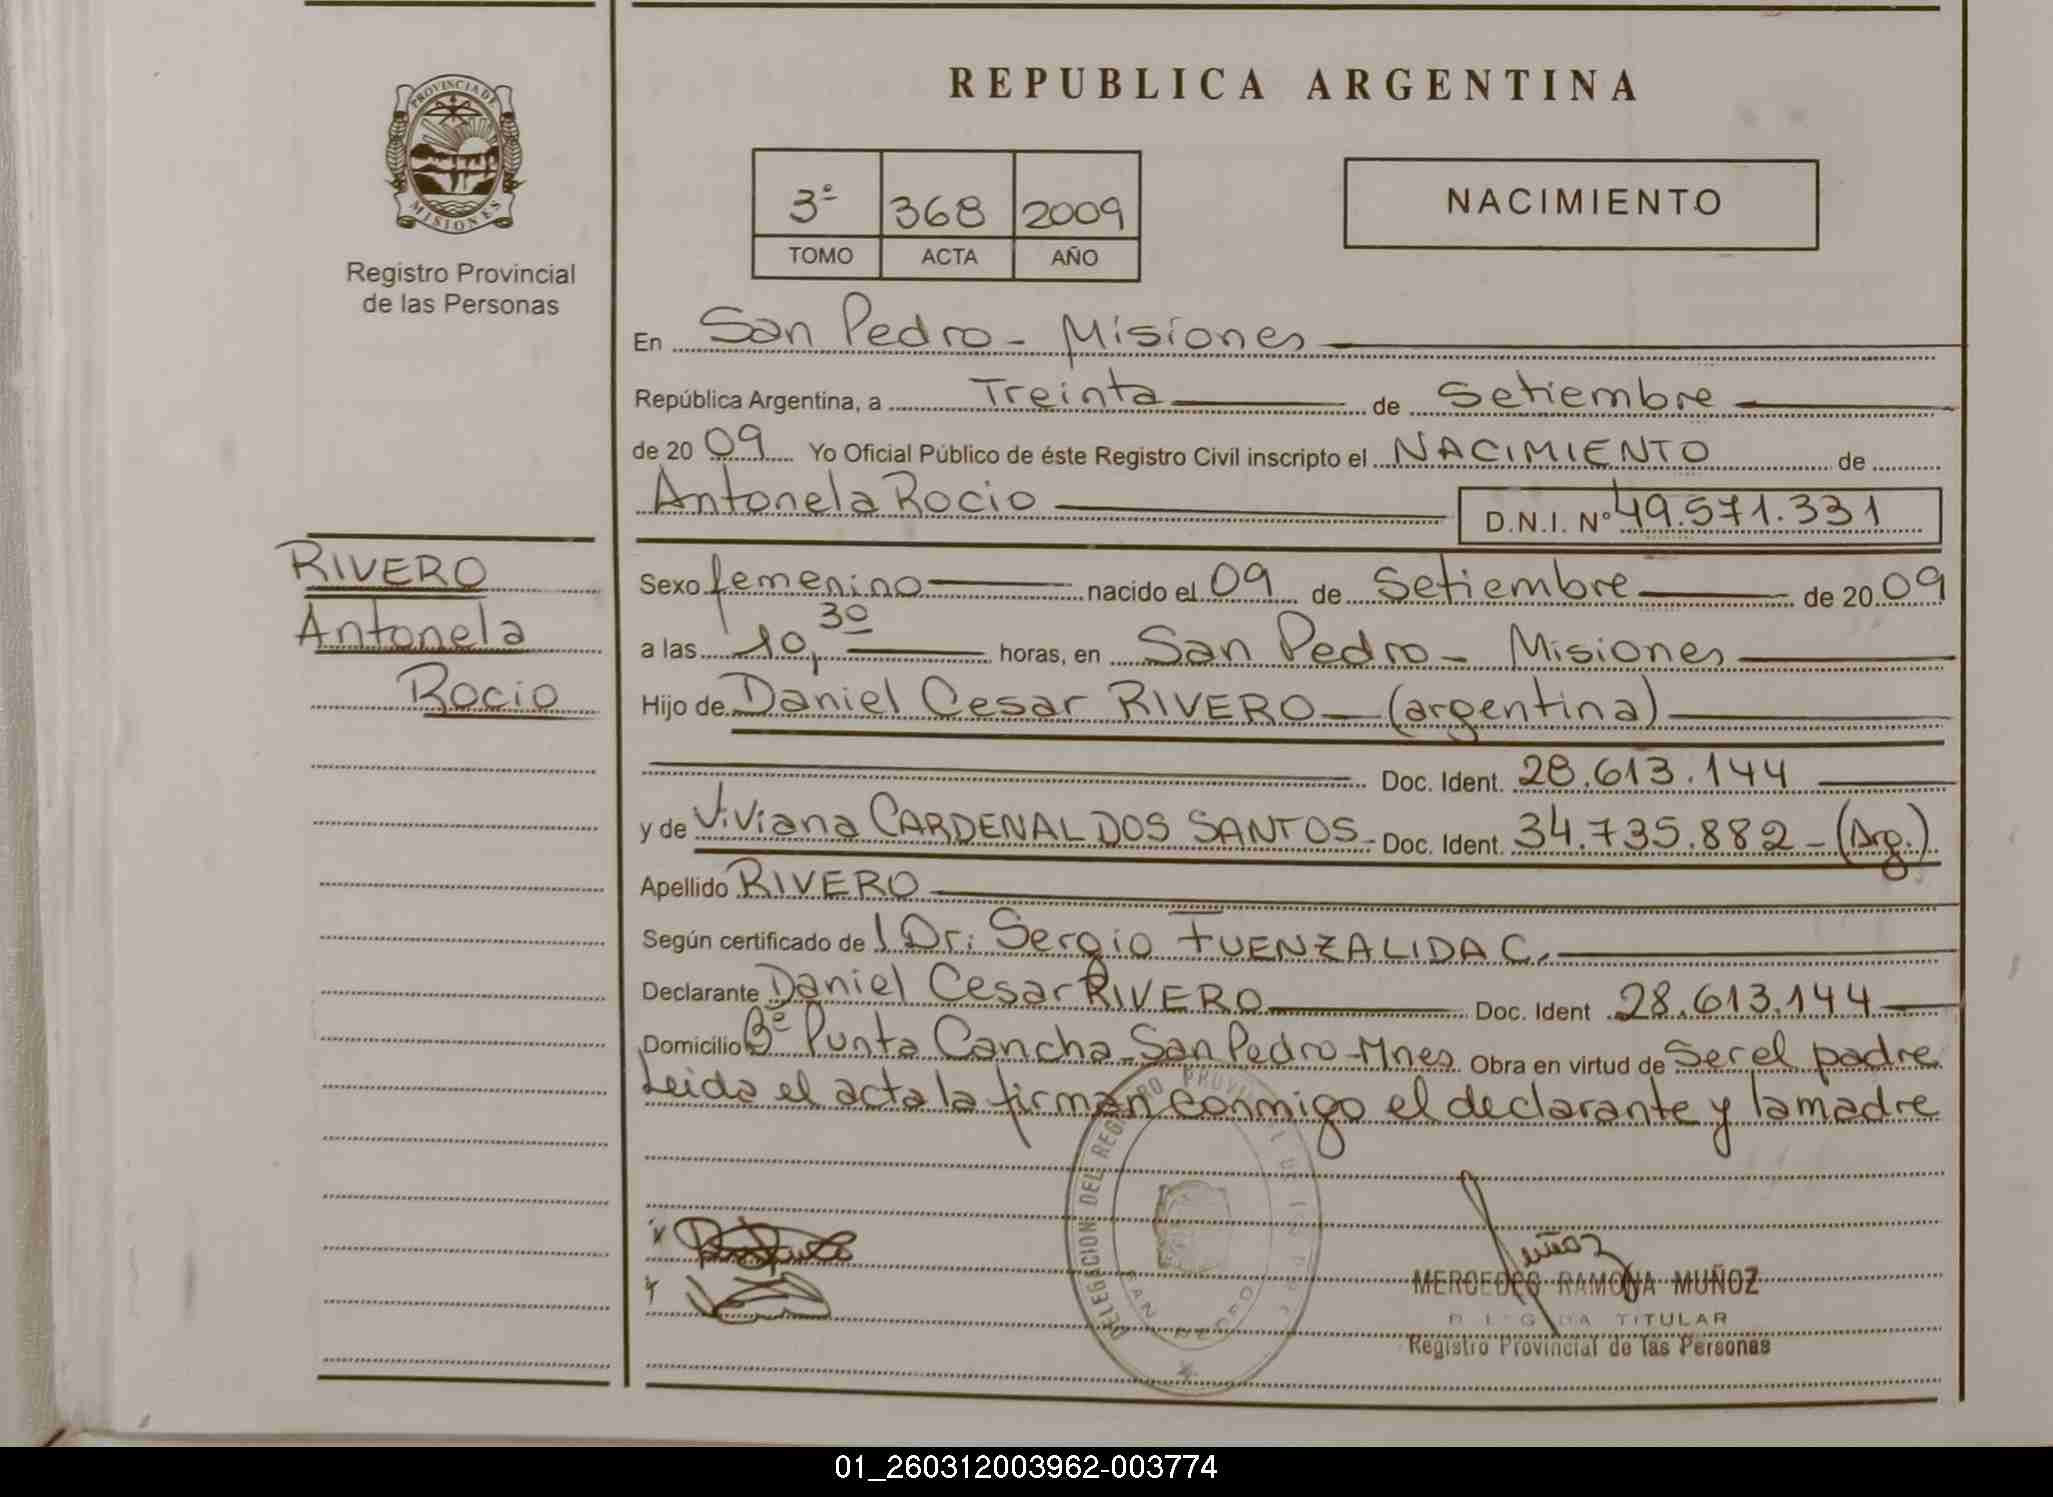 PROVINCIA DE
MISIONES
Registro Provincial
de las Personas
REPUBLICA ARGENTINA
3º 368 2009
TOMO ACTA AÑO
NACIMIENTO
En San Pedro - Misiones
República Argentina, a Treinta de Setiembre
de 20 09 Yo Oficial Público de éste Registro Civil inscripto el NACIMIENTO de
Antonela Rocio D.N.I. Nº 49.571.331
RIVERO
Antonela
Rocio
Sexo femenino nacido el 09 de Setiembre de 20 09
a las 10,30 horas, en San Pedro - Misiones
Hijo de Daniel Cesar RIVERO - (argentina)
Doc. Ident. 28.613.144
y de Viviana CARDENAL DOS SANTOS - Doc. Ident. 34.735.882 - (Arg.)
Apellido RIVERO
Según certificado de l Dr: Sergio FUENZALIDA C.
Declarante Daniel Cesar RIVERO Doc. Ident 28.613.144
Domicilio Bº Punta Cancha - San Pedro - Mnes Obra en virtud de Ser el padre
Leida el acta la firman conmigo el declarante y la madre
DELEGACION DEL REGISTRO PROVINCIAL DE
SAN PEDRO
Muñoz
MERCEDES RAMONA MUÑOZ
DELEGADA TITULAR
Registro Provincial de las Personas
01_260312003962-003774